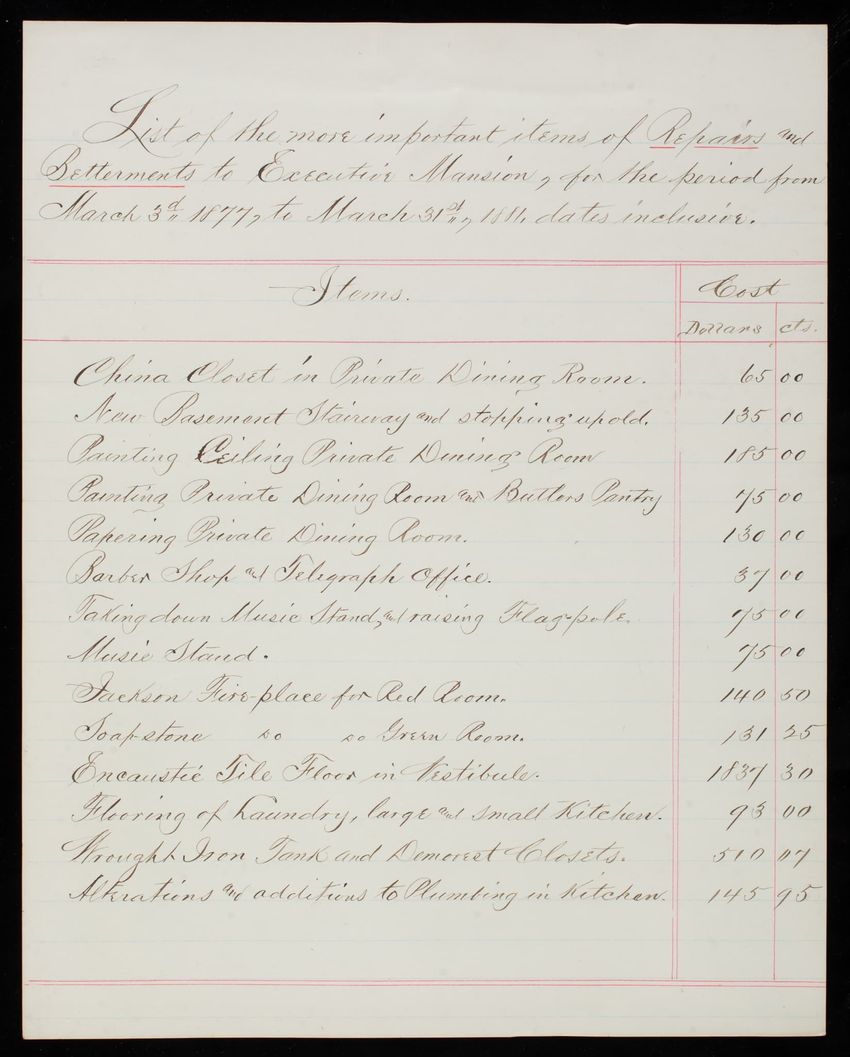 List of the more important items of Repairs and
Betterments to Executive Mansion, for the period from
March 3d 1877, to March 31st, 1881. dates inclusive.
Items. Cost
Dollars cts.
China Closet in Private Dining Room. 65 00
New Basement Stairway and stopping up old. 135 00
Painting Ceiling Private Dining Room 185 00
Painting Private Dining Room and Butlers Pantry 75 00
Papering Private Dining Room. 130 00
Barber Shop and Telegraph Office. 37 00
Taking down Music Stand, and raising Flag-pole. 75 00
Music Stand. 75 00
Jackson Fire-place for Red Room. 140 50
Soap-stone do do Green Room. 131 25
Encaustic Tile Floor in Vestibule. 1837 30
Flooring of Laundry, large and small Kitchen. 93 00
Wrought Iron Tank and Demorest Closets. 510 07
Alterations and additions to Plumbing in Kitchen. 145 95